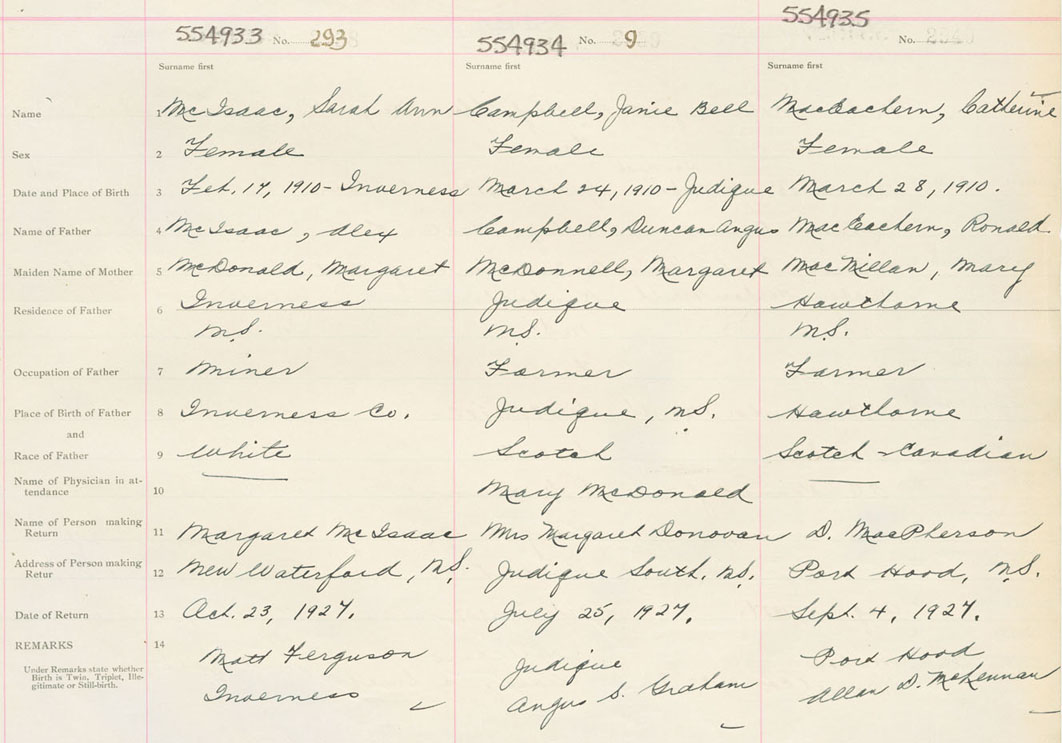 554933 No. 293 554934 No. 9 554935 No. 2340
Surname first Surname first Surname first
Name 1 McIsaac, Sarah Ann Campbell, Janie Bell MacEachern, Catherine
Sex 2 Female Female Female
Date and Place of Birth 3 Feb. 17, 1910 - Inverness March 24, 1910 - Judique March 28, 1910.
Name of Father 4 McIsaac, Alex Campbell, Duncan Angus MacEachern, Ronald.
Maiden Name of Mother 5 McDonald, Margaret McDonnell, Margaret MacMillan, Mary
Residence of Father 6 Inverness Judique Hawthorne
N.S. N.S. N.S.
Occupation of Father 7 Miner Farmer Farmer
Place of Birth of Father 8 Inverness Co. Judique, N.S. Hawthorne
and
Race of Father 9 White Scotch Scotch-Canadian
Name of Physician in at-
tendance 10 Mary McDonald
Name of Person making
Return 11 Margaret McIsaac Mrs Margaret Donovan D. MacPherson
Address of Person making
Retur 12 New Waterford, N.S. Judique South. N.S. Port Hood, N.S.
Date of Return 13 Oct. 23, 1927. July 25, 1927. Sept. 4, 1927.
REMARKS 14 Matt Ferguson Judique Port Hood
Under Remarks state whether
Birth is Twin, Triplet, Ille-
gitimate or Still-birth.
Inverness Angus S. Graham Allan D. McLennan